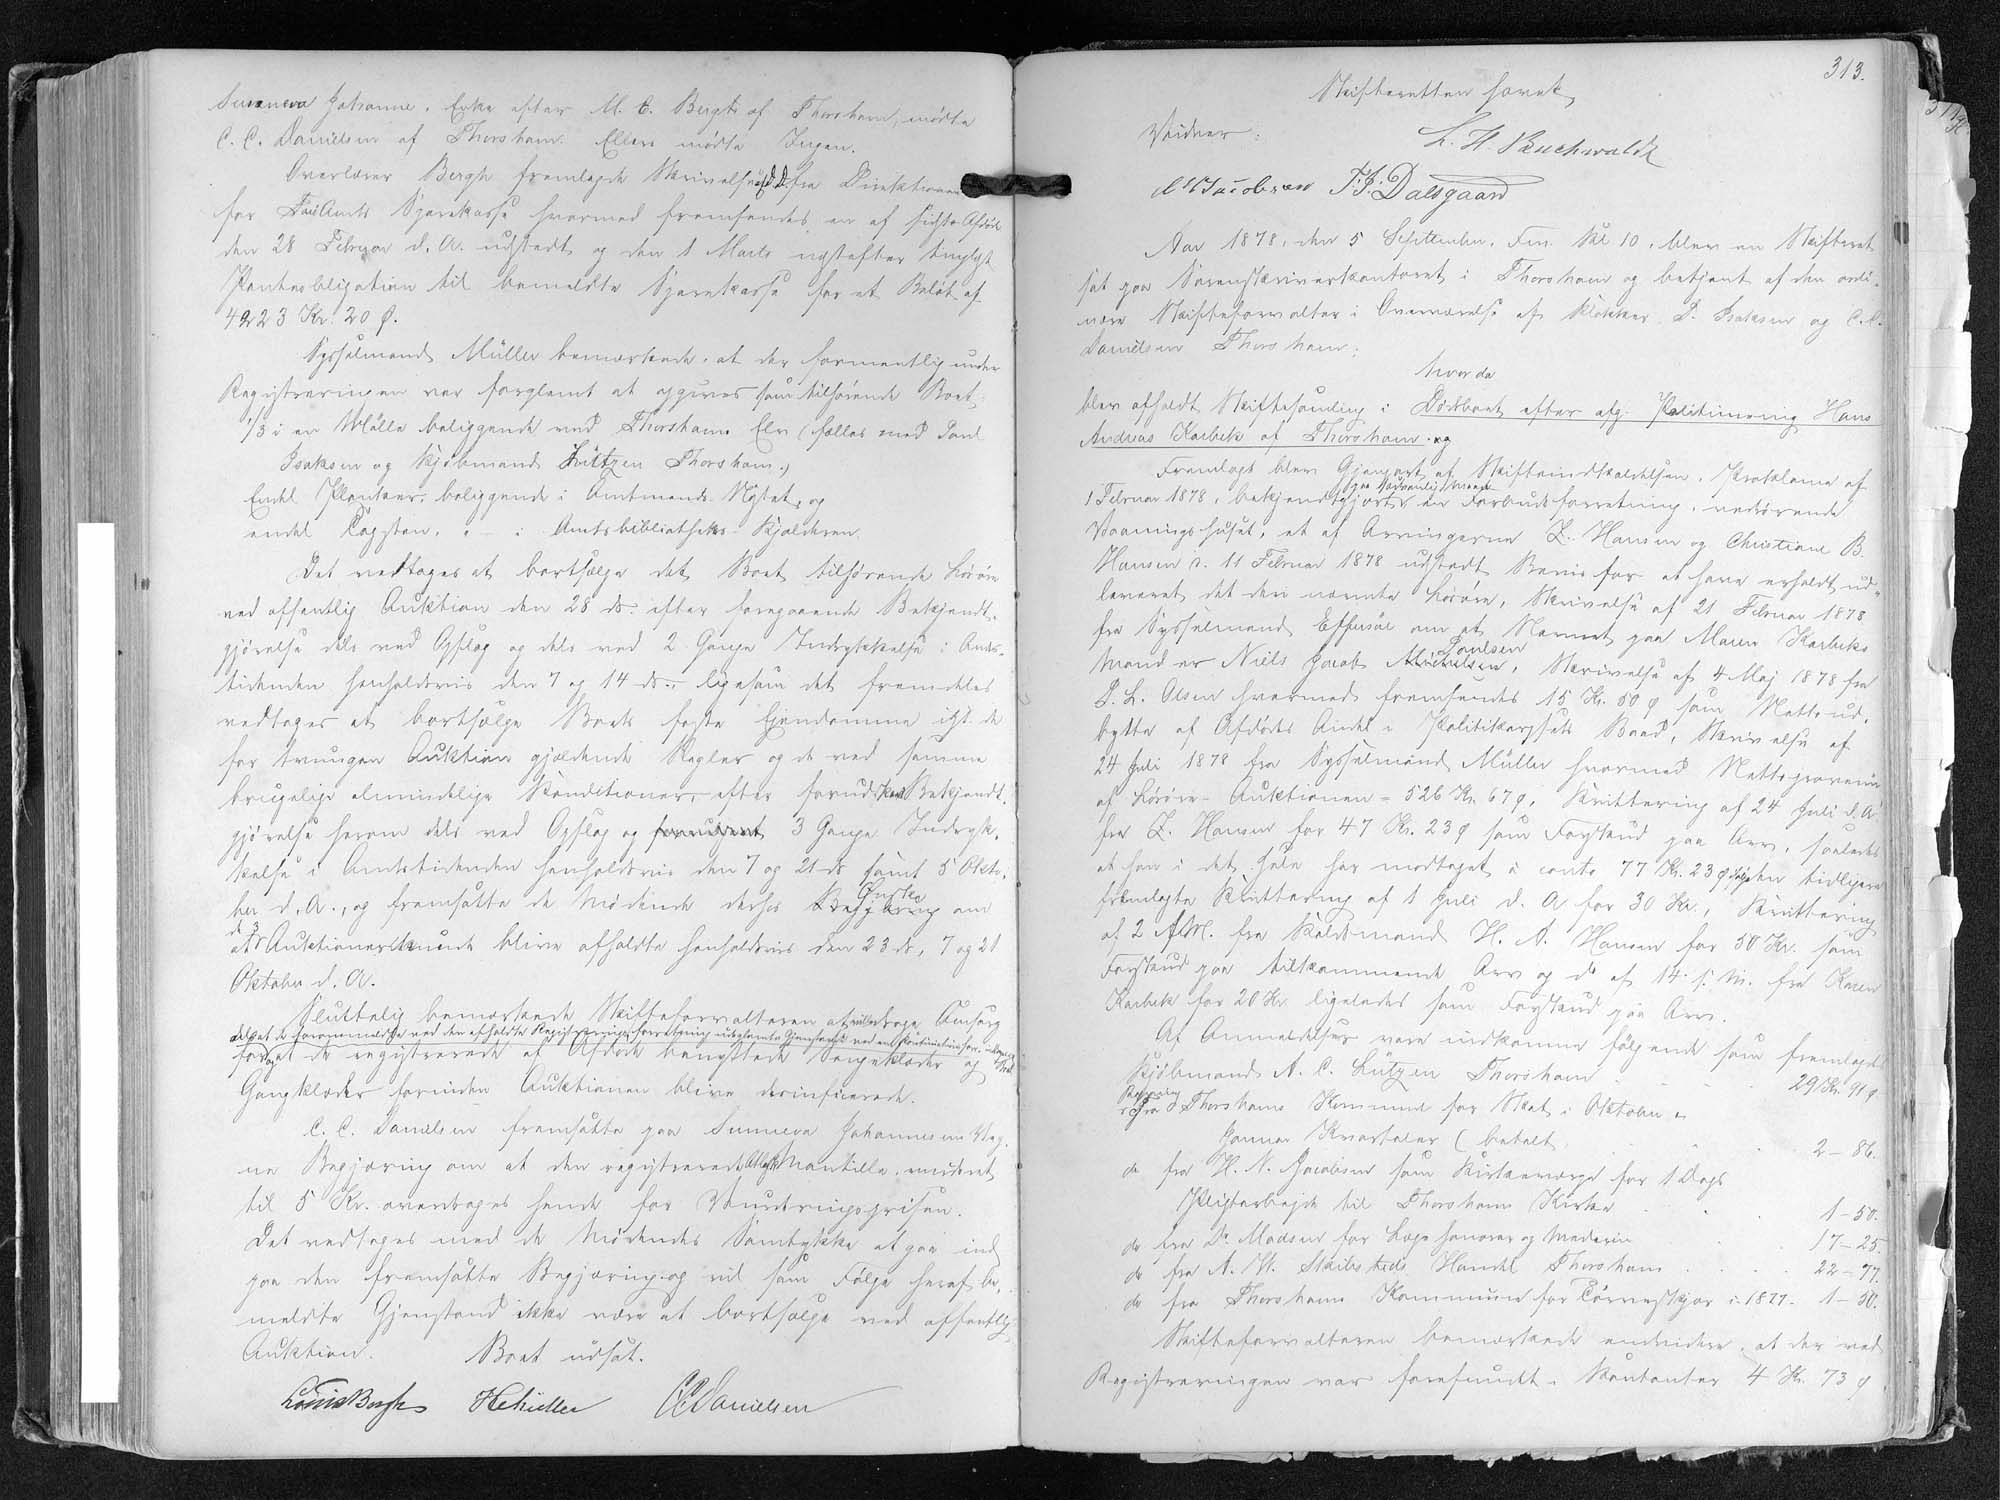 Sunneva Johanne, Enke efter M. C. Bergh af Thorshavn, mødte
C. C. Danielsen af Thorshavn. Ellers mødte Ingen.
Overlærer Bergh fremlagde Skrivelse fra Direktionen
for Færø Amts Sparekasse hvormed fremsendes en af sidste Afdøde
den 28 Februar d. A. udstedt og den 1 Marts næstefter tinglyst
Panteobligation til bemeldte Sparekasse for et Beløb af
4223 Kr. 20 Ø.
Sysselmand Müller bemærkede, at der formentlig under
Registreringen var forglemt at opgives som tilhørende Boet
1/3 i en Mølle beliggende ved Thorshavns Elv (fælles med Poul
Isaksen og Kjøbmand Lützen Thorshavn.)
Endel Planker, beliggende i Amtmands Nystet, og
endel Tagsten, " – i Amtsbibliotheks Kjælderen.
Det vedtoges at bortsælge det Boet tilhørende Løsøre
ved offentlig Auktion den 28 ds. efter foregaaende Bekjendt-
gjørelse dels ved Opslag og dels ved 2 Gange Indrykkelse i Amts-
tidenden henholdsvis den 7 og 14 ds., ligesom det fremdeles
vedtoges at bortsælge Boets faste Ejendomme igt. de
for tvungen Auktion gjældende Regler og de ved samme
brugelige almindelige Konditioner, efter forudsket Bekjendt-
gjørelse herom dels ved Opslag og 3 Gange Indryk-
kelse i Amtstidenden henholdsvis den 7 og 21 ds samt 5 Okto-
ber d. A., og fremsatte de Mødende derhos Ønske om
at Auktionerne kunde blive afholdte henholdsvis den 23 ds, 7 og 21
Oktober d. A.
Sluttelig bemærkede Skifteforvalteren at ville drage Omsorg
dels at de forommeldte ved den afholdte Registreringsforretning udeglemte Gjenstande ved en
for at de registrerede af Afdøde benyttede Sengeklæder og
Gangklæder forinden Auktionen blive desinficerede.
C. C. Danielsen fremsatte paa Sunneva Johannesens Veg-
ne Begjæring om at den registrerede Mantille, vurderet
til 5 Kr. overtages hende for Vurderingsprisen.
Det vedtoges med de Mødendes Samtykke at gaa ind
paa den fremsatte Begjæring og vil som Følge heraf be-
meldte Gjenstand ikke være at bortsælge ved offentlig
Auktion. Boet udsat.
Louis Bergh HMüller CCDanielsen
313.
Skifteretten hævet
Vidner: L. H. Buchwaldt
Jacobsen T. J. Dalsgaard
Aar 1878, den 5 September, Fm. Kl 10, blev en Skifteret
sat paa Sorenskriverkontoret i Thorshavn og betjent af den ordi-
nære Skifteforvalter i Overværelse af Klokker D. Isaksen og C. C.
Danielsen Thorshavn;
hvor da
blev afholdt Skiftesamling i Dødsboet efter afg. Politimening Hans
Andreas Karbek af Thorshavn. og
Fremlagt blev Gjenpart af Skifteindkaldelsen, Proklama af
1 Februar 1878, bekjendtgjort, en Forbudsforretning, vedrørende
Vaaningshuset, et af Arvingerne Z. Hansen og Christiane B.
Hansen d. 11 Februar 1878 udstedt Bevis for at have erholdt ud-
leveret det den nævnte Løsøre, Skrivelse af 21 Februar 1878
fra Sysselmand Effersøe om at Navnet paa Maren Karbeks
Mand er Niels Jacob Poulsen, Skrivelse af 4 Maj 1878 fra
D. L. Olsen hvormed fremsendes 15 Kr. 50 Ø som Netto ud-
bytte af Afdødes Andel i Politikorpsets Baad, Skrivelse af
24 Juli 1878 fra Sysselmand Müller hvormed Nettoprovenu
af Løsøre-Auktionen = 526 Kr. 67 Ø, Kvittering af 24 Juli d. A.
fra Z. Hansen for 47 Kr. 23 Ø som Forskud paa Arv, saaledes
at han i det Hele har modtaget à conto 77 Kr. 23 Ø den tidligere
fremlagte Kvittering af 1 Juli d. A for 30 Kr., Kvittering
af 2 f. M. fra Kaldsmand H. A. Hansen for 50 Kr. som
Forskud paa tilkommende Arv og do af 14 f. M. fra Karen
Karbek for 20 Kr ligeledes som Forskud paa Arv.
Af Anmeldelser vare indkomne følgende som fremlagdes
Kjøbmand A. C. Lützen Thorshavn . . . 29 Kr. 91 Ø
Regning fra Thorshavns Kommune for Skat i Oktober &
Januar Kvartaler (betalt . . . 2 – 86.
do fra H. N. Jacobsen som Kirkeværge for 1 Dags
Pligtarbejde til Thorshavns Kirke . . . 1 – 50.
do fra Dr. Madsen for Læge honorar og Medecin . . . 17 – 25.
do fra A. W. Skibsteds Handel Thorshavn . . . 22 – 77.
do fra Thorshavns Kommune for Tørveskjær i 1877. 1 – 50.
Skifteforvalteren bemærkede endvidere, at der ved
Registreringen var forefundet i Kontanter 4 Kr. 73 Ø